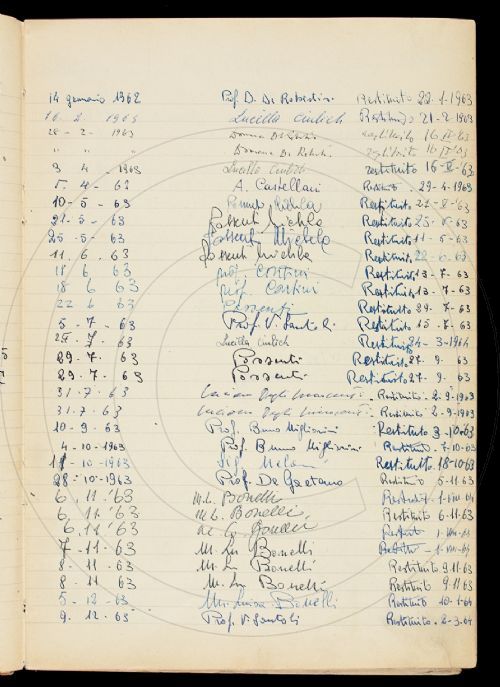 14 gennaio 1962 Prof. D. De Robertis Restituito 22-1-1963
16 2 1963 Lucilla Ciulich Restituito 21-2-1963
28-2-1963 Domenico De Robertis restituito 16 IV 63
" " " Domenico De Robertis restituito 16 IV 63
3 4 - 1963 Lucilla Ciulich restituito 16-IV-63
5. 4 - 63 A. Castellani Restituito 29-4-1963
10-5-63 Restituito 27-V-63
21-5-63 Possenti Michela Restituito 25-V-63
25 5- 63 Possenti Michela Restituito 11-5-63
11. 6. 63 Possenti Michela Restituito 63
18 6 63 prof. Contini Restituito 13-7-63
18 6 63 prof. Contini Restituito 13-7-63
22 6 63 Possenti Restituito 29-7-63
5-7-63 Prof. V. Santoli Restituito 15-7-63
25-7-63 Lucilla Ciulich Restituito 24-3-1964
29.7.63 Possenti Restituito 27-9-63
29.7.63 Possenti Restituito 27-9-63
31.7.63 Luciana Restituito-2-9-1963
31.7.63 Luciana Restituito-2-9-1963
10-9-63 Prof. Bruno Migliorini Restituito 3-10-63
4-10-1963 Prof. Bruno Migliorini Restituito-7-10-63
11-10-1963 Restituito 18-10-63
28-10-1963 Prof. De Gaetano Restituito 5-11-63
6, 11 '63 M. L. Bonelli Restituito
6, 11 '63 M. L. Bonelli Restituito 6-11-63
6, 11 '63 Bonelli
7-11-63 M. Lu Bonelli
8-11-63 M. Lu Bonelli Restituito 9.11.63
8-11 63 M. Lu Bonelli Restituito 9.11.63
5-12-63 M. Luisa Bonelli Restituito 10-1-64
9. 12. 63 Prof. V. Santoli Restituito. 2-3-64